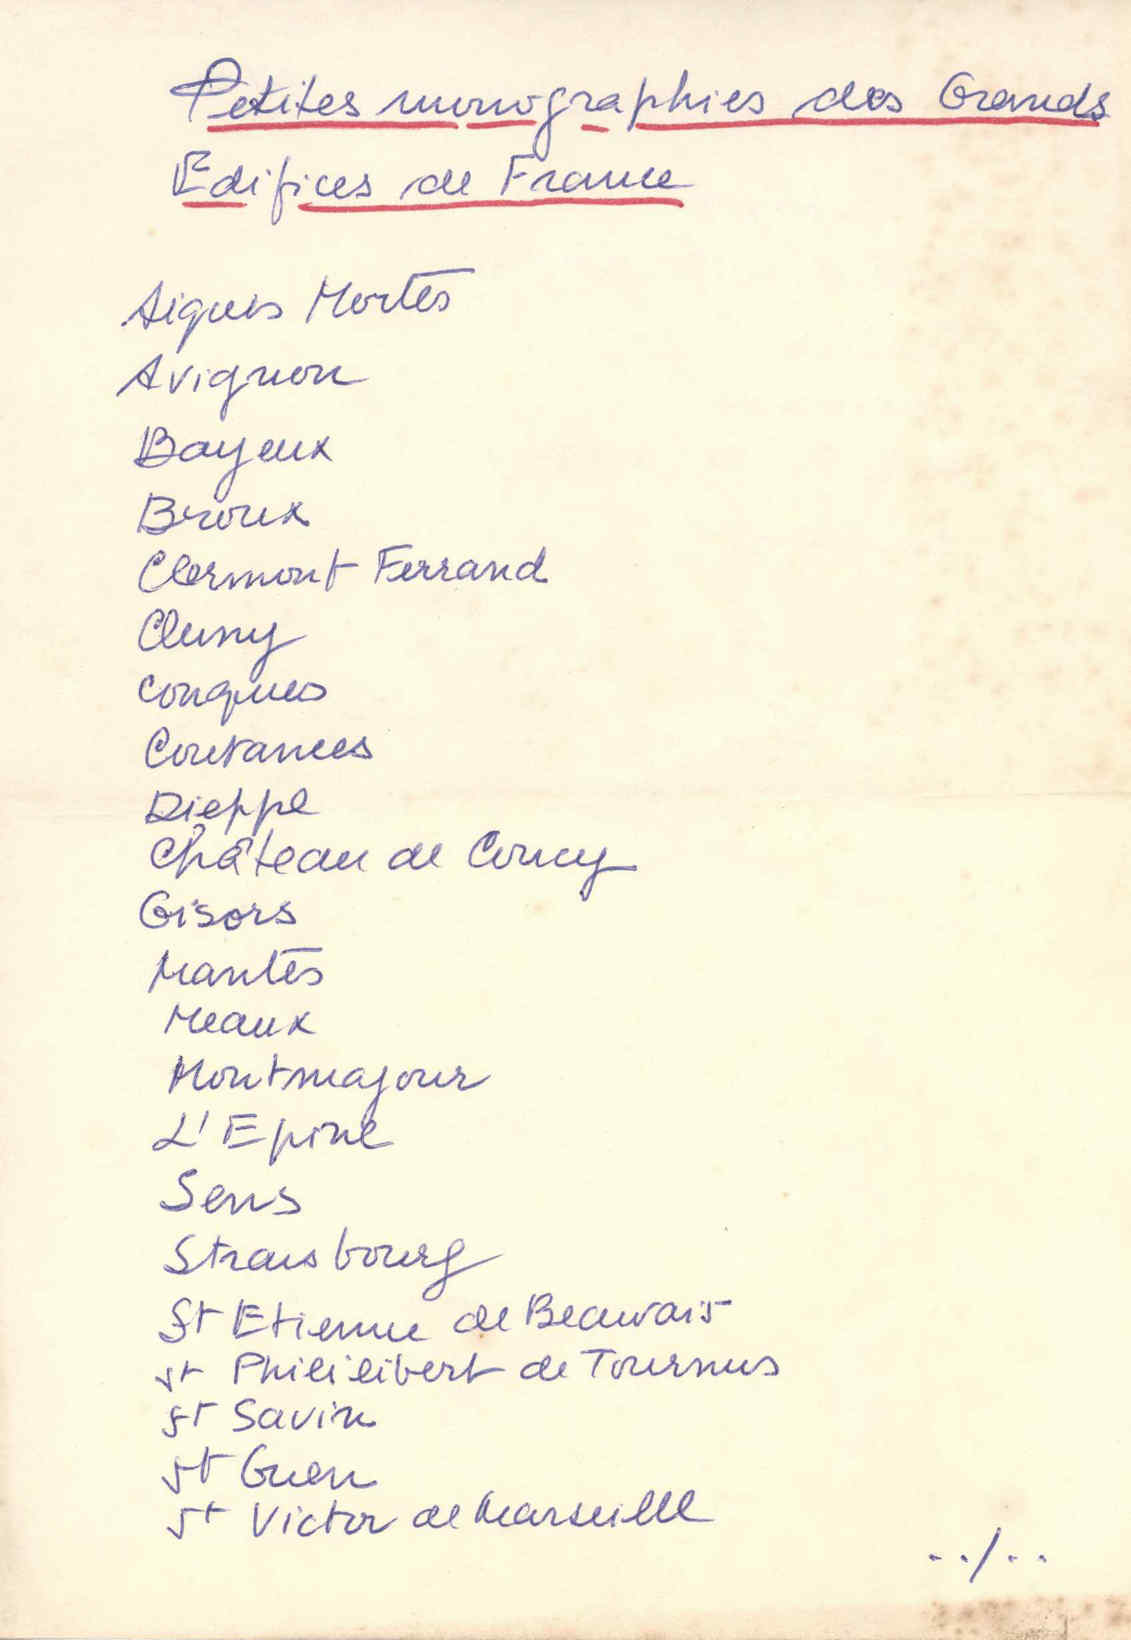 Petites monographies des Grands
Edifices de France
Aigues Mortes
Avignon
Bayeux
Broux
Clermont Ferrand
Cluny
Conques
Coutances
Dieppe
Château de Coucy
Gisors
Mantes
Meaux
Montmajour
L'Epine
Sens
Strasbourg
St Etienne de Beauvais
St Phililibert de Tournus
St Savin
St Guen
St Victor de Marseille
../..